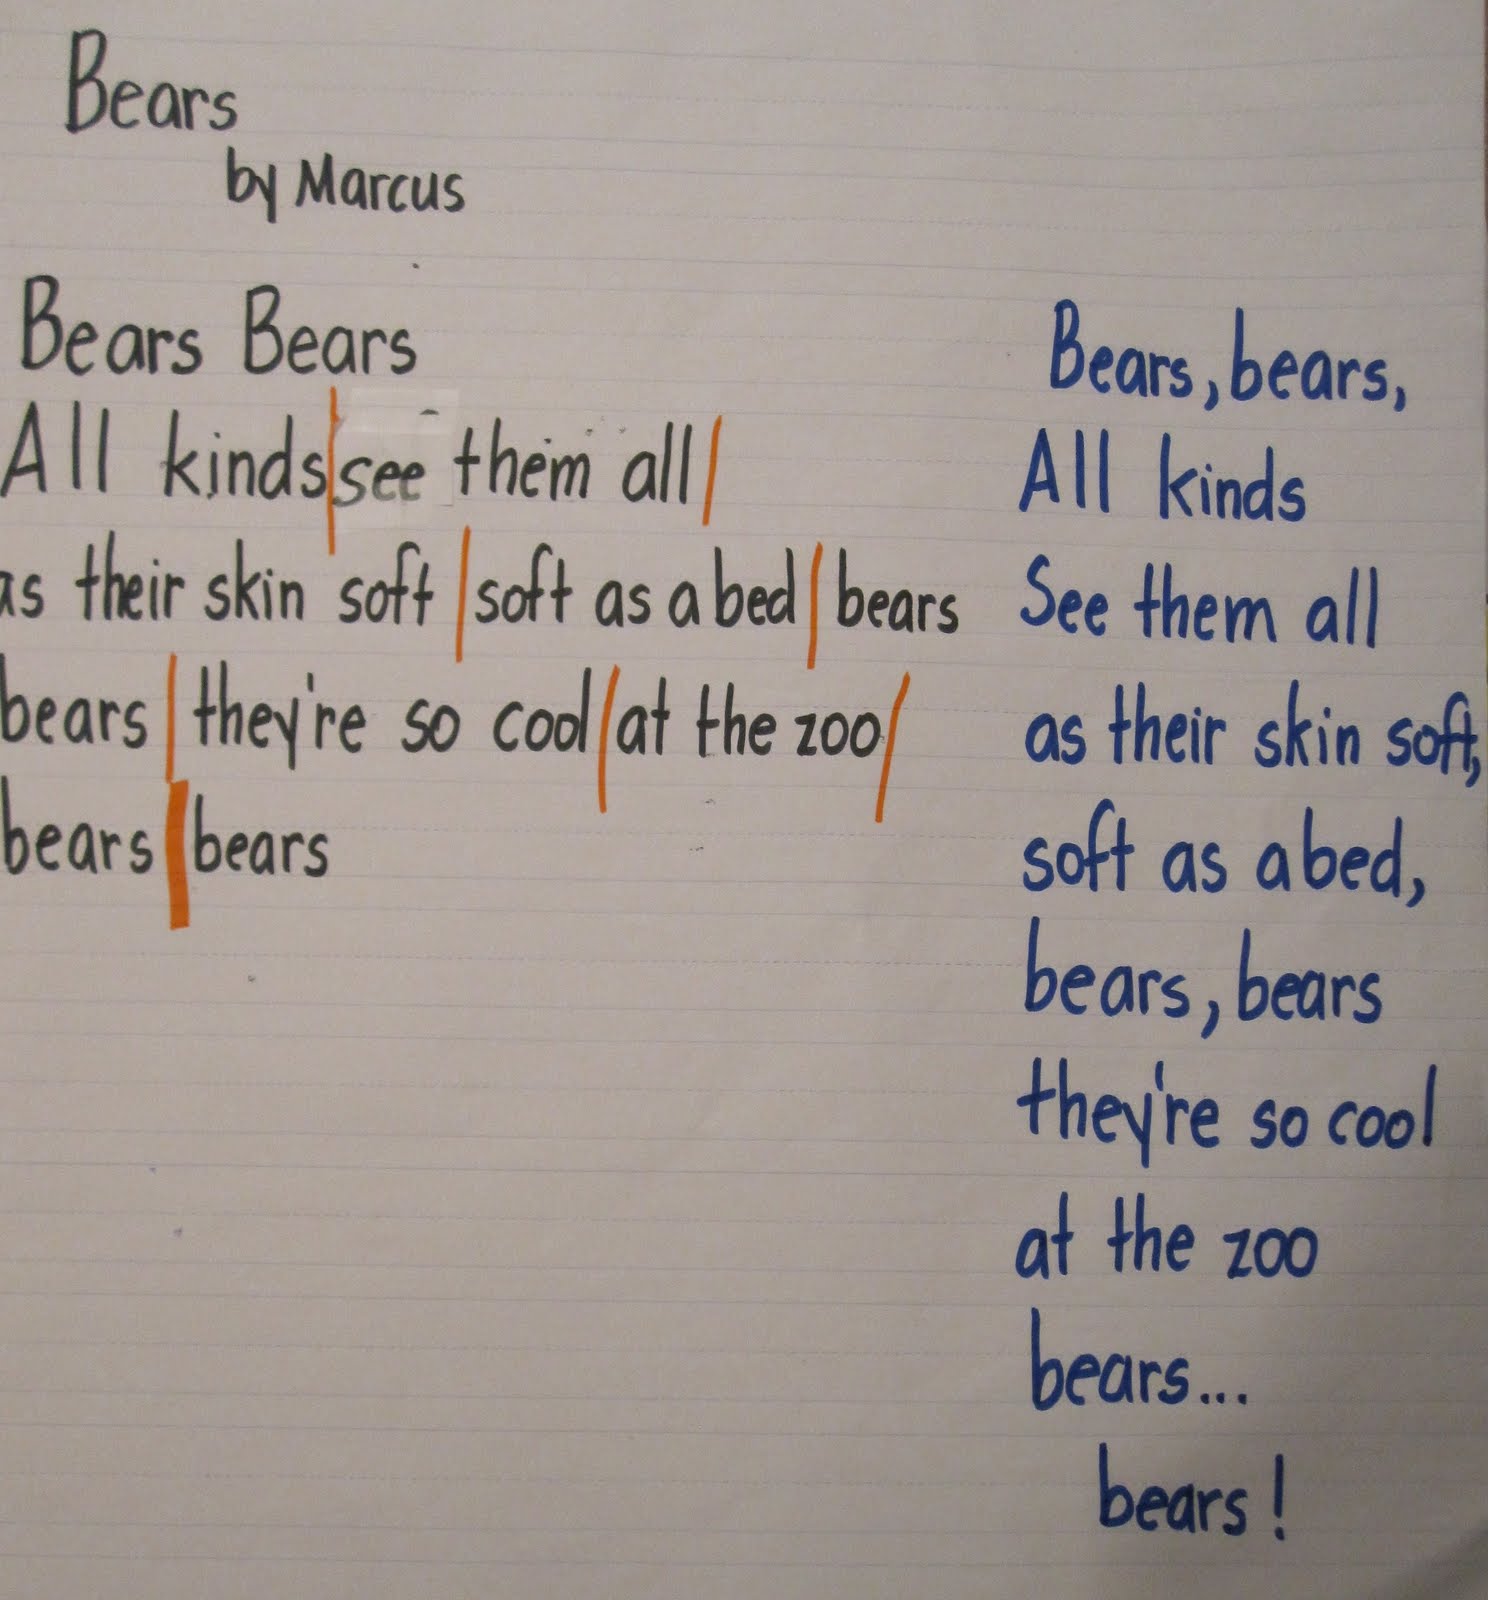 Bears
by Marcus
Bears Bears
All kinds see them all
as their skin soft soft as a bed bears
bears they're so cool at the zoo
bears bears
Bears, bears,
All kinds
See them all
as their skin soft,
soft as a bed,
bears, bears
they're so cool
at the zoo
bears...
bears!